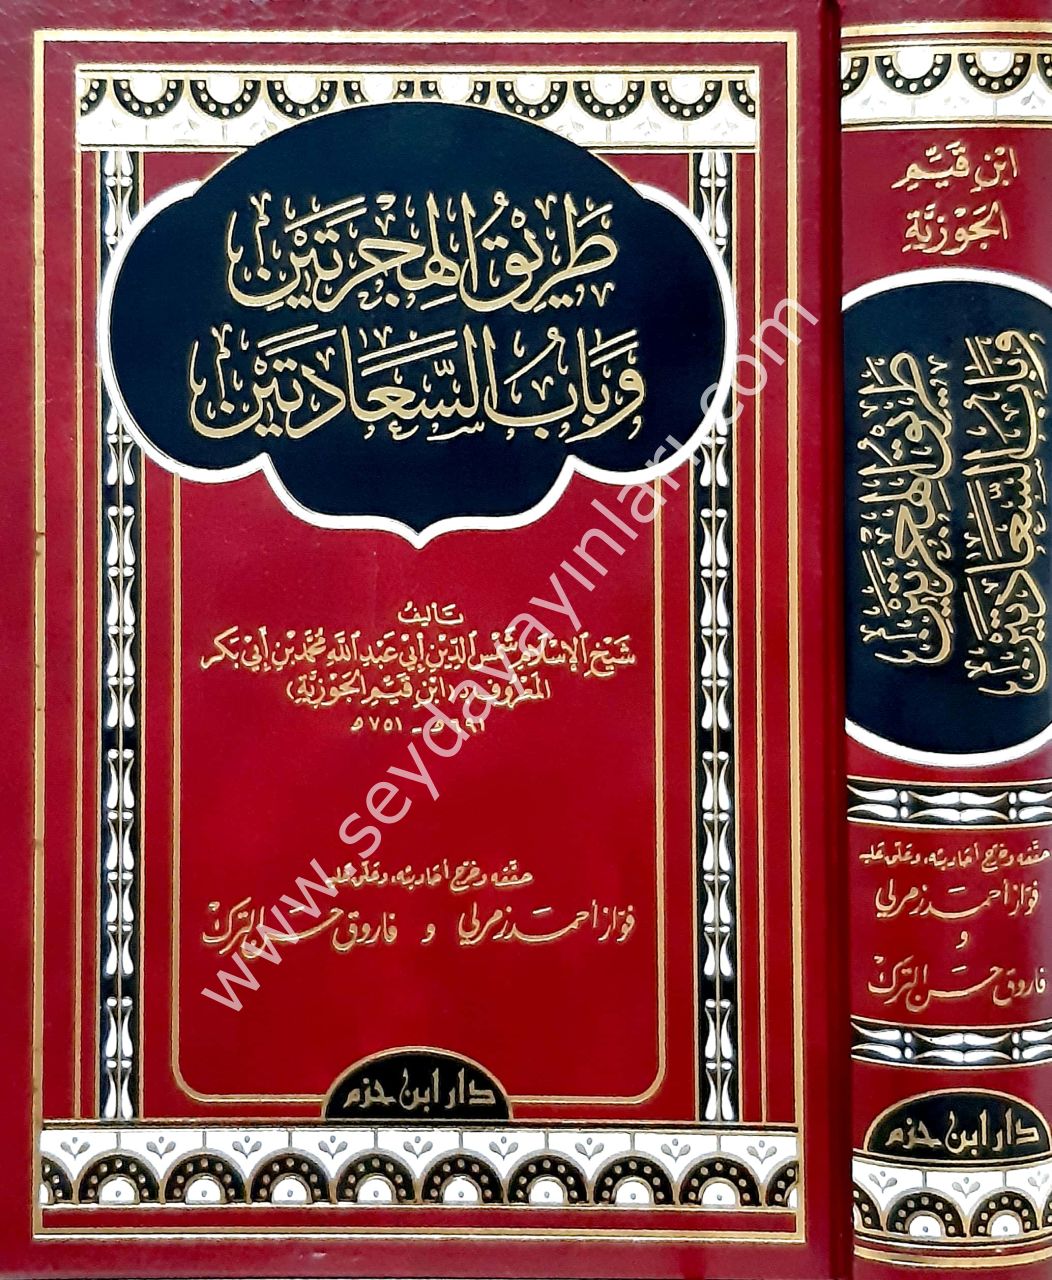 طَرِيقُ الهِجْرَتَيْن
وَبَابُ السَّعَادَتَيْن
تَأليفُ
شَيْخِ الإِسْلَامِ شَمْسِ الدِّيْنِ أَبِيْ عَبْدِ اللهِ مُحَمَّد بْنِ أَبِيْ بَكر
المَعْرُوف بـ (ابْن قَيِّمِ الجَوْزِيَّةِ)
٦٩١هـ - ٧٥١هـ
حققه وخرج أحاديثه، وعلق عليه
فوّاز أحمد زمرلي و فاروق حسن الترك
دار ابن حزم
ابْنِ قَيِّمِ
الجَوْزِيَّةِ
طَرِيقُ الهِجْرَتَيْن
وَبَابُ السَّعَادَتَيْن
حققه وخرج أحاديثه، وعلق عليه
فوّاز أحمد زمرلي
و
فاروق حسن الترك
دار ابن حزم
www.seydayayınları.com